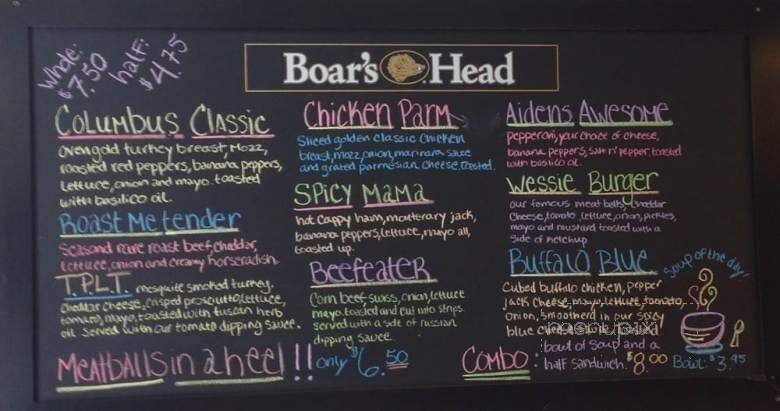 Whole:
$7.50
half:
$4.75
Boar's Head
Columbus Classic
Ovengold turkey breast, Mozz,
roasted red peppers, banana peppers,
lettuce, onion and mayo. toasted
with basilico oil.
Roast Me tender
Seasond rare roast beef, cheddar,
lettuce, onion and creamy horseradish.
T.P.L.T. mesquite smoked turkey.
cheddar cheese, crisped prosciutto, lettuce,
tomato, mayo, toasted with tuscan herb
oil. Served with our tomato dipping sauce.
Meatballs in a heel!! only $6.50
Chicken Parm
Sliced golden classic Chicken
breast, mozz, onion, marinara sauce
and grated parmesian cheese. toasted.
Spicy Mama
hot cappy ham, monterary jack,
banana peppers, lettuce, mayo all
toasted up.
Beefeater
Corn beef, swiss, onion, lettuce
mayo. toasted and cut into strips
served with a side of russian
dipping sauce.
Aidens Awesome
Pepperoni, your choice of cheese,
banana peppers, salt n' pepper, toasted
with basilico oil.
Wessie Burger
our famous meat balls, cheddar
cheese, tomato, lettuce, onion, pickles,
mayo and mustard toasted with a
side of ketchup
Buffalo Blue
Cubed buffalo chicken, pepper
jack cheese, mayo, lettuce, tomato,
onion, Smootherd in our spicy
blue
menupix
Combo: bowl of soup and a
half sandwich. $8.00
Soup of the day!
Bowl: $3.95